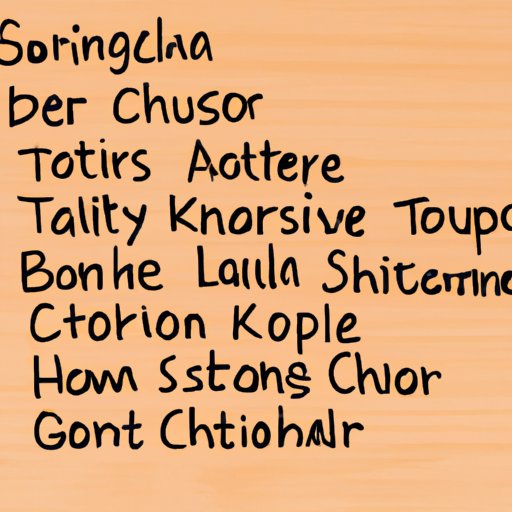 Soringclna
ber Chusor
Totirs Aottere
Tality Knorsive Toupo
Bonhe Laula Shitermne
Ctorion Kople
Hown Sstons Chuor
Gont Chtiohalr